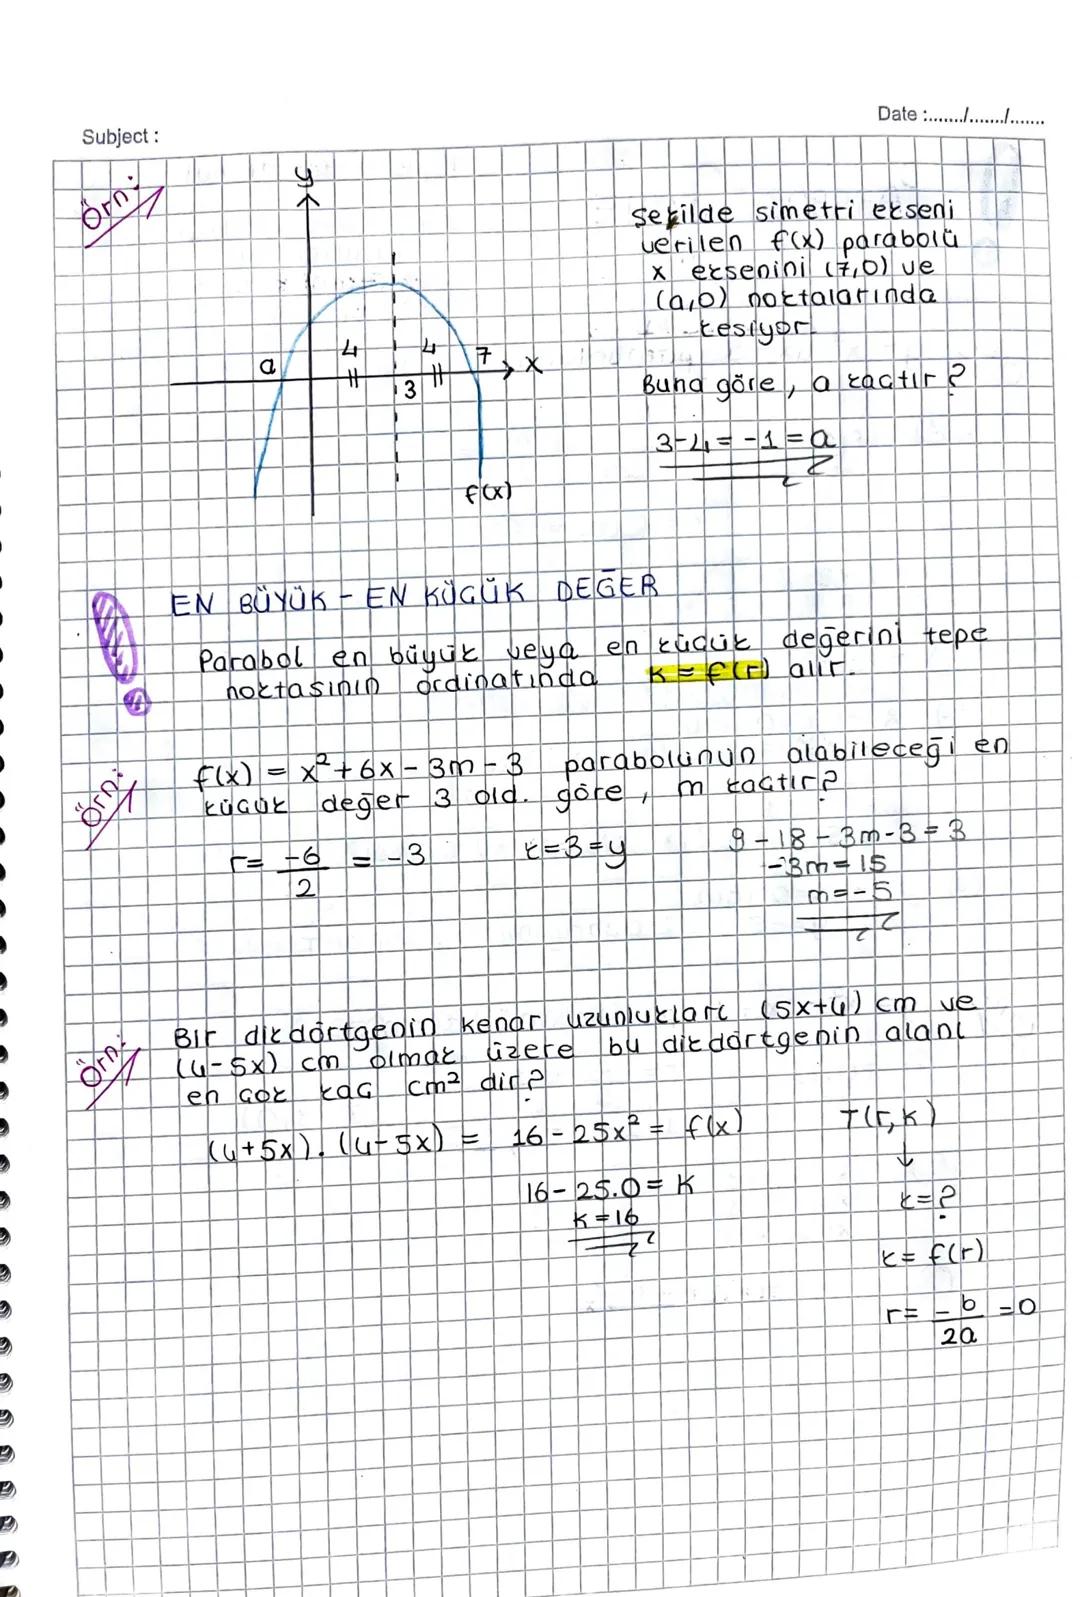 Subject :
Date :......./......./.......
Örn:
y
a
4
4
7
x
3
f(x)
Şekilde simetri ekseni
verilen f(x) parabolü
x eksenini (7,0) ve
(a,0) noktalarında
kesiyor.
Buna göre, a kaçtır?
3-4=-1=a
EN BÜYÜK - EN KÜÇÜK DEĞER
Parabol en büyük veya en küçük değerini tepe
noktasının ordinatında k=f(r) alır.
Örn:
f(x) = x²+6x-3m-3 parabolünün alabileceği en
küçük değer 3 old. göre, m kaçtır?
r= -6/2 = -3
k=3=y
9-18-3m-3=3
-3m=15
m=-5
Örn:
Bir dikdörtgenin kenar uzunlukları (5x+4) cm ve
(4-5x) cm olmak üzere bu dikdörtgenin alanı
en çok kaç cm² dir?
(4+5x).(4-5x) = 16-25x² = f(x)
16-25.0=k
k=16
T(r,k)
↓
k=?
k=f(r)
r= -b/2a =0